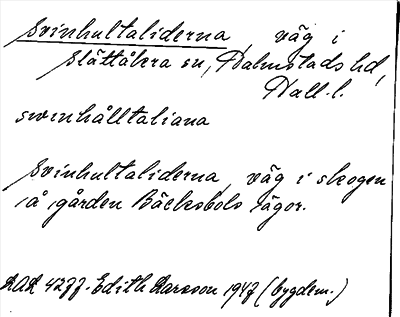 Svinhultaliderna, väg i
Slättåkra sn, Halmstads hd,
Hall. l.
swinhålltaliana
Svinhultaliderna, väg i skogen
å gården Bäcksbols ägor.
4277. Edith Larsson 1947 (bygdem.)